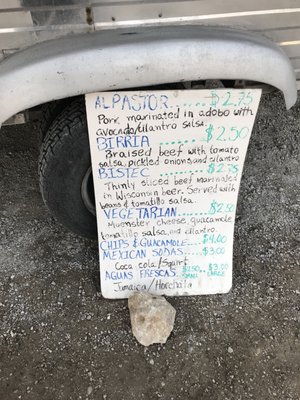 AL PASTOR ..... $2.75
Pork marinated in adobo with
avocado/cilantro salsa.
BIRRIA ............ $2.50
Braised beef with tomato
salsa, pickled onions, and cilantro.
BISTEC ............ $2.75
Thinly sliced beef marinated
in Wisconsin beer. Served with
beans & tomatillo salsa.
VEGETARIAN ........ $2.50
Muenster cheese, guacamole
tomatillo salsa, and cilantro.
CHIPS & GUACAMOLE .... $4.00
MEXICAN SODAS ..... $3.00
Coca cola/Squirt
AGUAS FRESCAS. $2.50 SMALL $3.50 LARGE
Jamaica/Horchata